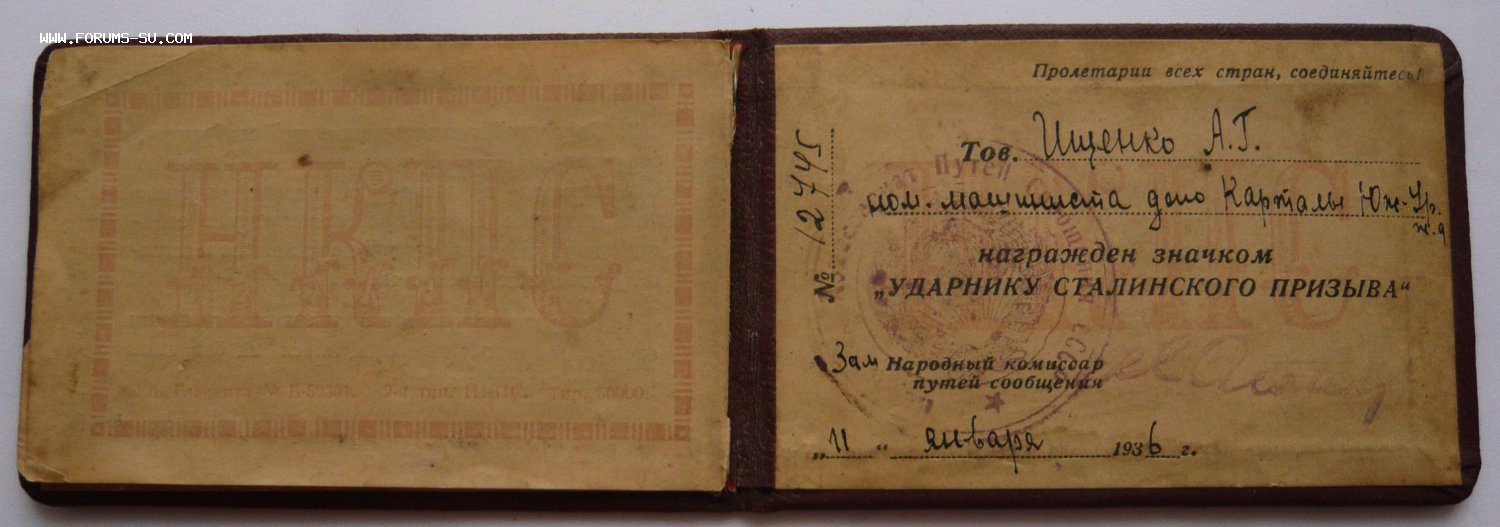 WWW.FORUMS-SU.COM
НКПС
Тир. 50000
Пролетарии всех стран, соединяйтесь!
№ 12745
Тов. Ищенко А.Г.
пом. машиниста депо Карталы Юж-Ур.
ж.д
награжден значком
„УДАРНИКУ СТАЛИНСКОГО ПРИЗЫВА“
Зам Народный комиссар
путей сообщения
„11“ января 1936 г.